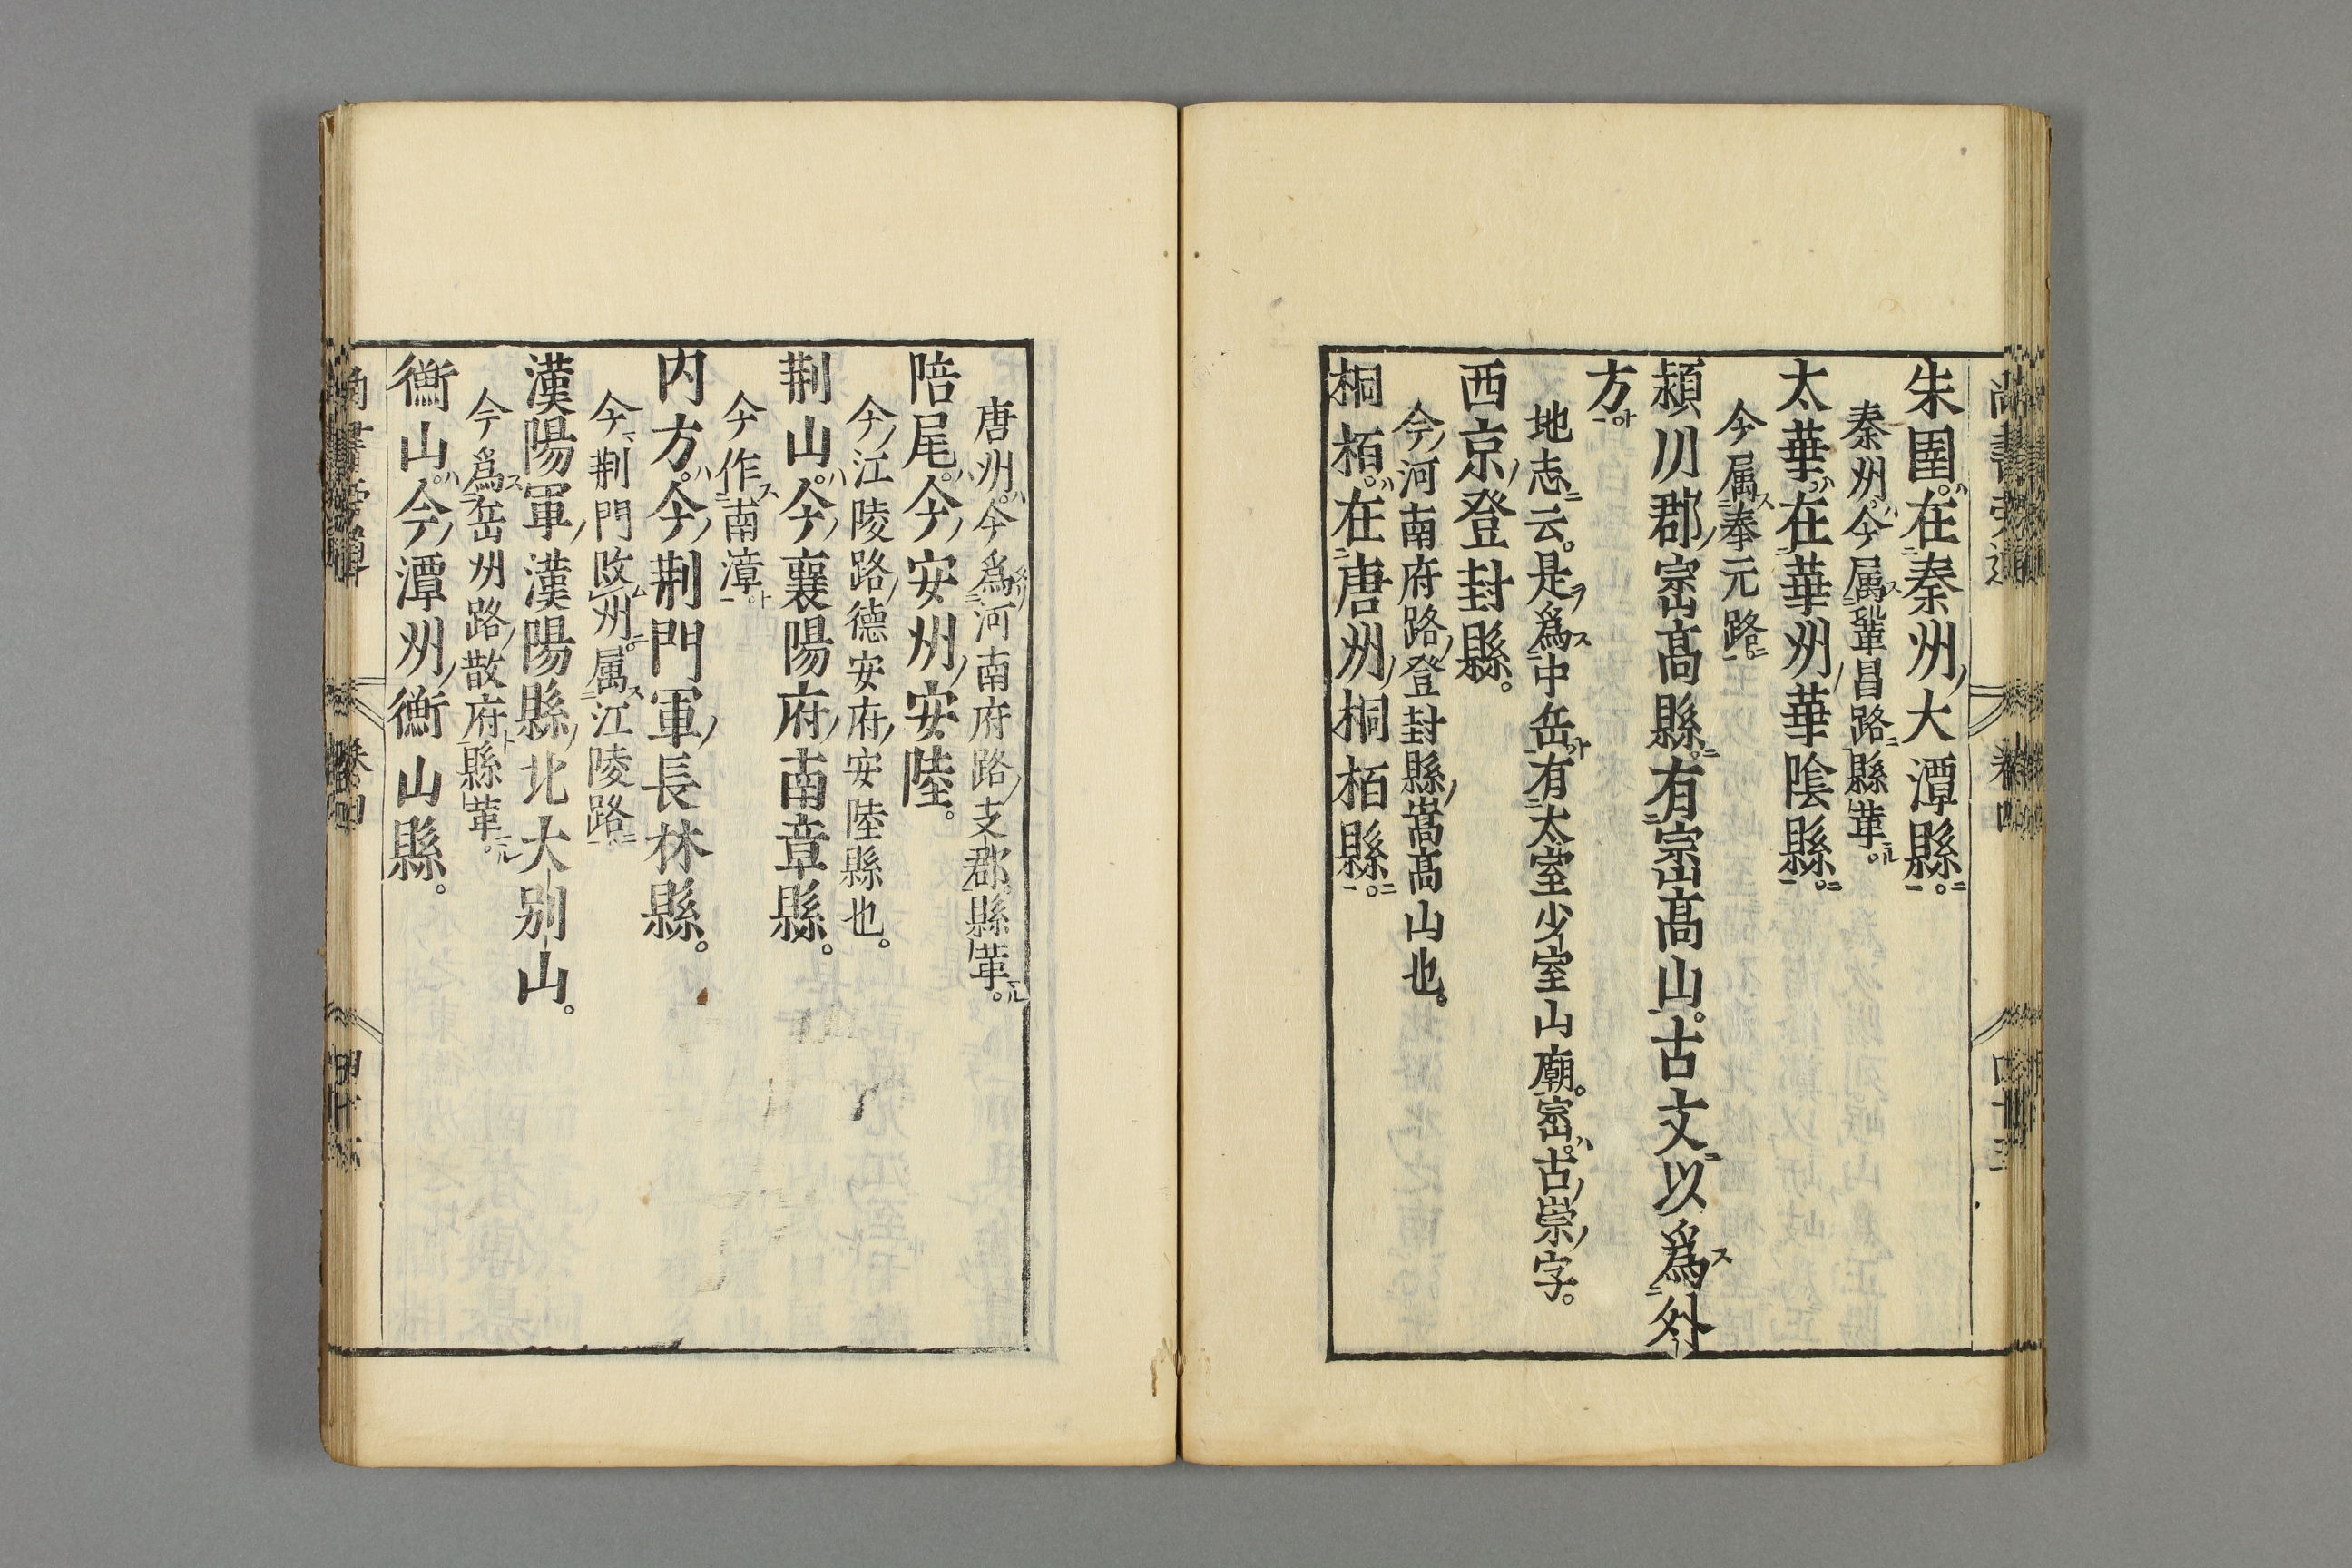 卷四
朱圉。在秦州大潭縣。
秦州。今属鞏昌路縣革。
太華。在華州華陰縣。
今属奉元路
潁川郡崈高縣。有崈高山。古文以爲外
方
地志云。是爲中岳有太室少室山廟。崈。古崇字。
西京登封縣。
今河南府路登封縣嵩高山也。
桐栢。在唐州桐栢縣。
唐州。今爲河南府路支郡。縣革。
陪尾。今安州安陸。
今江陵路德安府安陸縣也。
荆山。今襄陽府南章縣。
今作南漳
内方。今荆門軍長林縣。
今荆門改州。属江陵路
漢陽軍漢陽縣北大别山。
今爲岳州路散府縣革。
衡山。今潭州衡山縣。